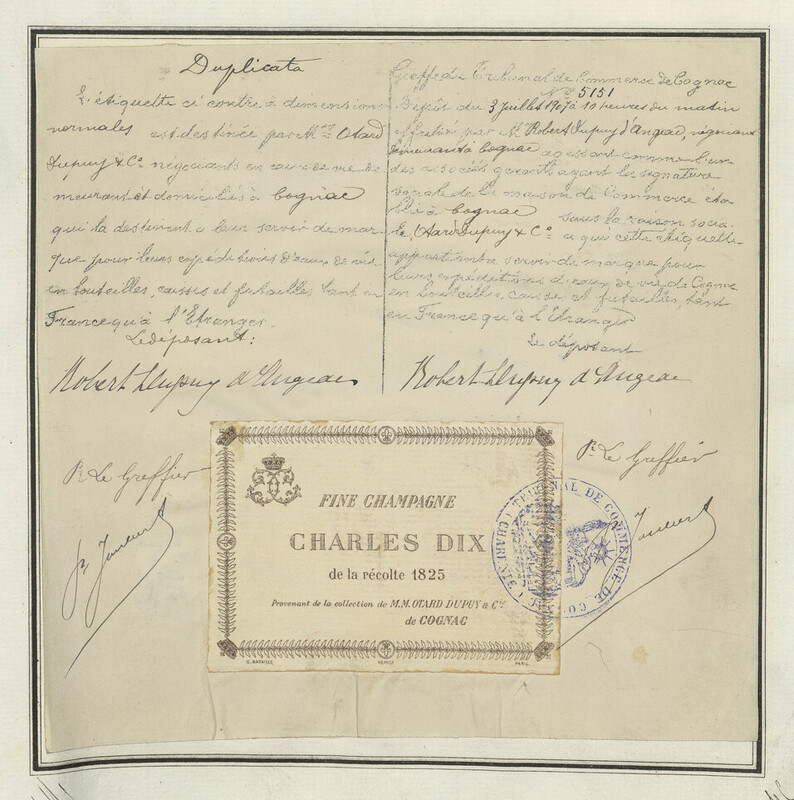 Duplicata
L'étiquette ci contre à dimensions
normales est destinée par MM. Otard
Dupuy & Co négociants en eaux de vie de
meurant et domiciliés à Cognac
qui la destinent a leur servir de mar-
que pour leurs expéditions d'eaux de vie
en bouteilles, caisses et futailles tant en
France qu'à l'Étranger.
Le déposant:
Robert Dupuy d'Angeac
Greffe du Tribunal de Commerce de Cognac
No 5151
Dépôt du 3 Juillet 1907 à 10 heures du matin
effectué par Mr Robert Dupuy d'Angeac, négociant
demeurant à Cognac agissant comme l'un
des associés gérants ayant la signature
sociale de la maison de Commerce éta-
blie à Cognac sous la raison socia-
le, Otard Dupuy & Co a qui cette étiquette
appartient servir de marque pour
leurs expéditions d'eaux de vie de Cognac
en bouteilles, caisses et futailles, tant
en France qu'à l'Étranger
Le déposant
Robert Dupuy d'Angeac
Pr Le Greffier
Pr Le Greffier
FINE CHAMPAGNE
CHARLES DIX
de la récolte 1825
Provenant de la collection de M.M. OTARD DUPUY & Cie
de COGNAC
G. BATAILLE DEPOSÉ PARIS
TRIBUNAL DE COMMERCE DE COGNAC (CHARENTE)